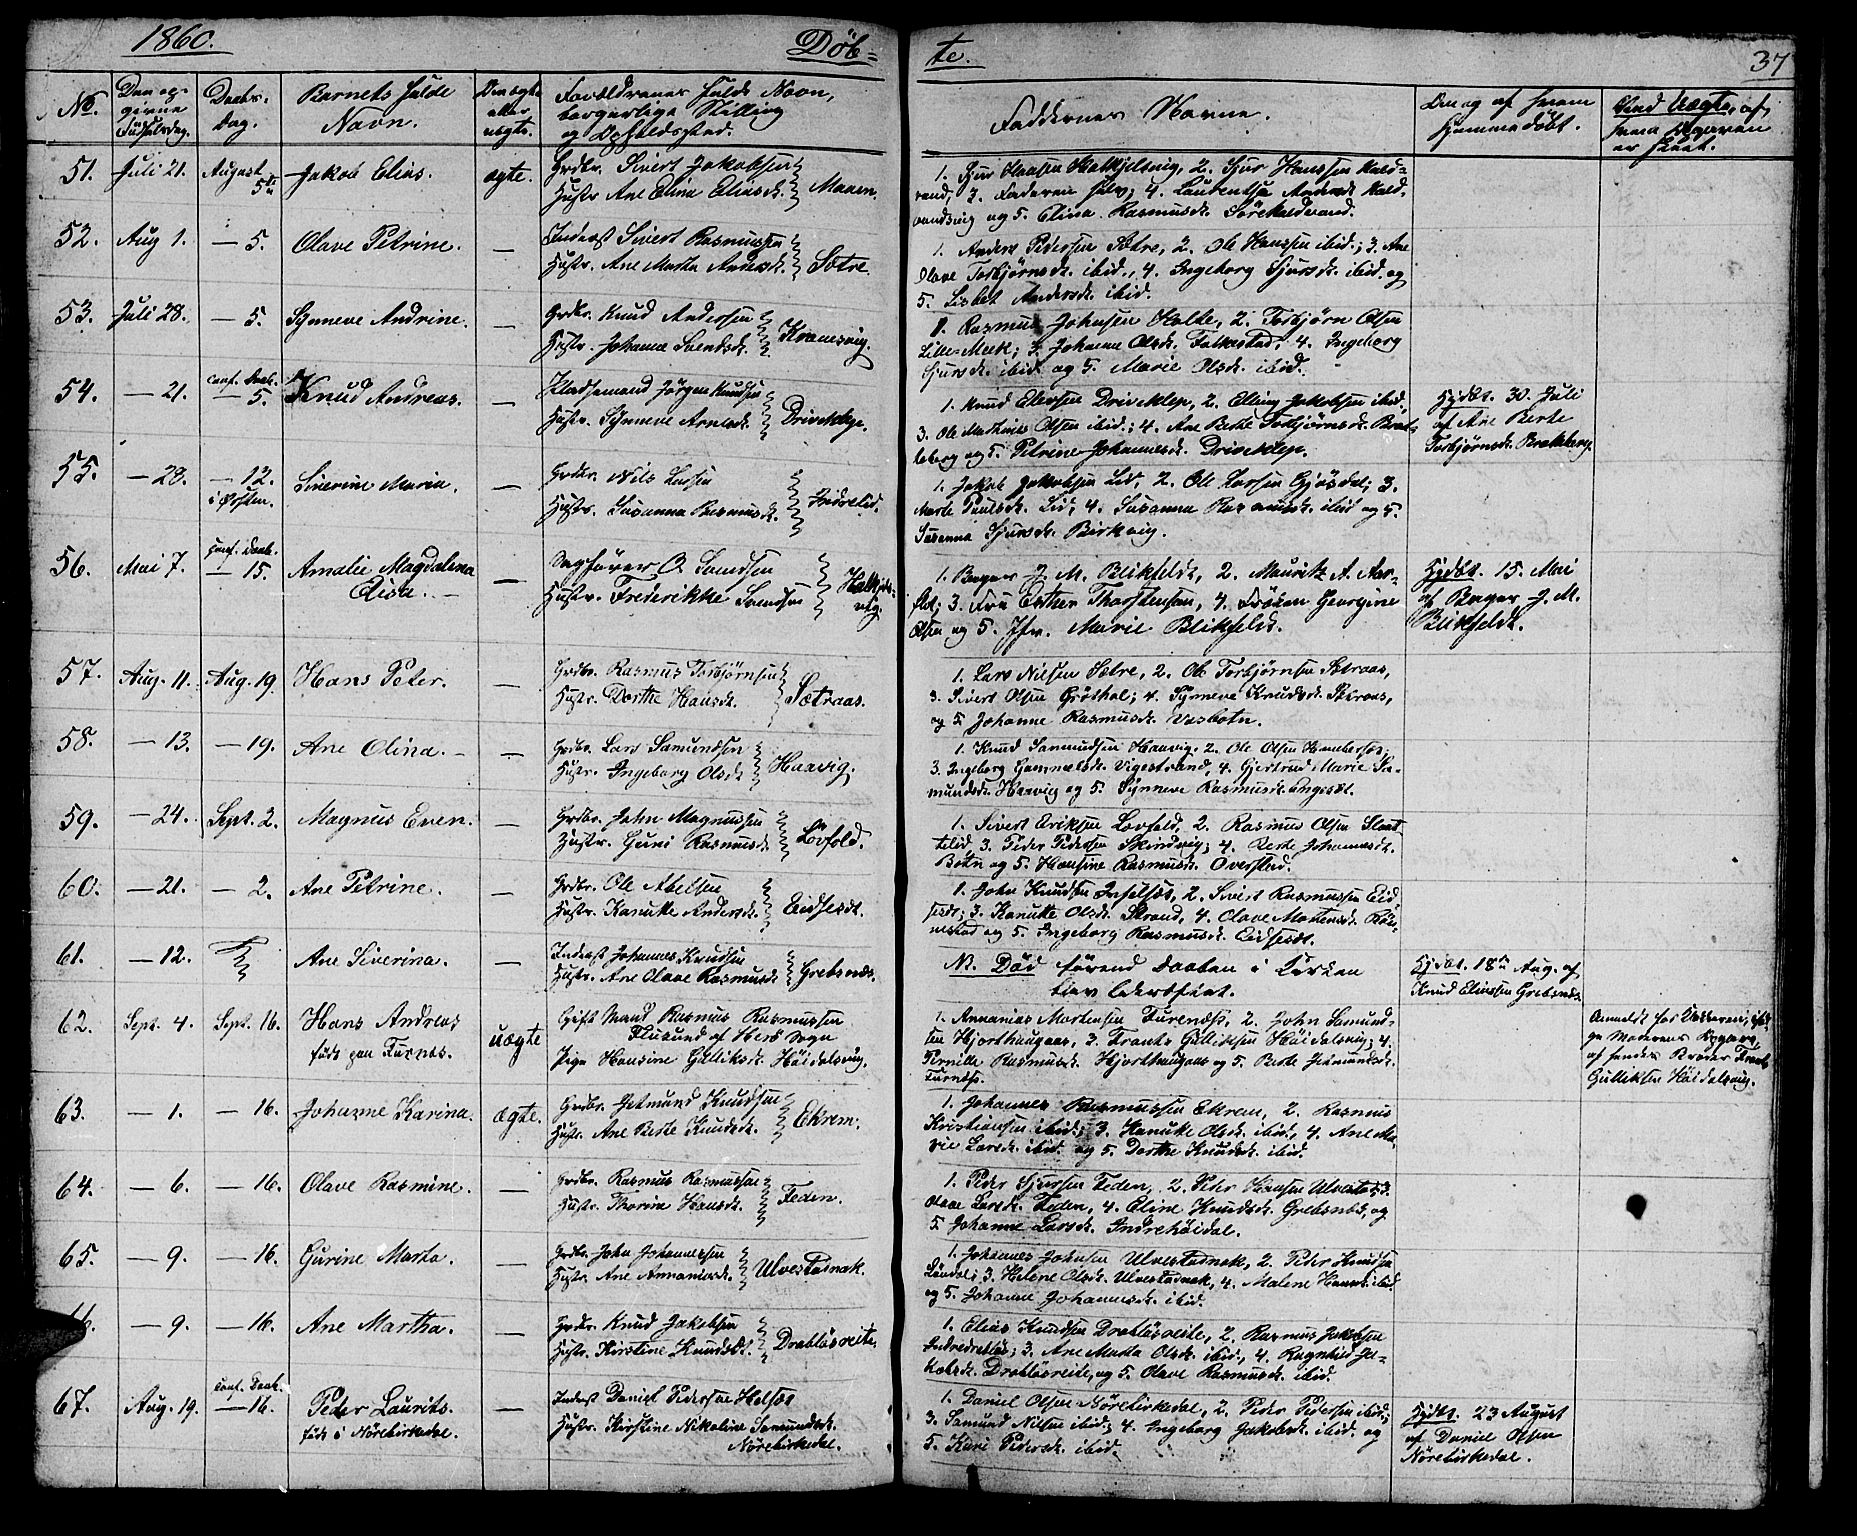 1860.
Døb=
te.
37
No.
Den op-
givne
Fødselsdag.
Daabs-
Dag.
Barnets fulde
Navn.
Om ægte
eller
uægte.
Forældrenes fulde Navn,
borgerlige Stilling
og Opholdssted.
Faddernes Navne.
Om og af hvem
hjemmedøbt.
Ved Uægte, af
hvem Opgaven
er skeet.
51. Juli 21. August 5te Jakob Elias. ægte.
Grdbr. Sivert Jakobsen
Hustr. Ane Elina Eliasdt. Maaen.
1. Sjur Hansen, 2. Sjur Hanssen Kald-
vand, 3. Faderen selv; 4. Laurentse Andersdt. Kald-
vandsvig og 5. Elina Rasmusdt. Sørekaldvand.
52. Aug 1. — 5. Olave Petrine. —
Inderst Sivert Rasmussen
Hustr. Ane Marta Andersdt. Sætre.
1. Anders Pedersen Sætre, 2. Ole Hanssen ibid.; 3. Ane
Olave Torbjørnsdt. ibid., 4. Ingeborg Sjursdt. ibid. og
5. Lisbet Andersdt. ibid.
53. Juli 28. — 5. Synneve Andrine. —
Grdbr. Knud Andersen
Hustr. Johanne Svendsdt. Kramsvig.
1. Rasmus Johnsen Kolke, 2. Torbjørn Olsen
Lille-Meek; 3. Johanne Olsdt. Falkestad; 4. Ingeborg
Sjursdt. ibid og 5. Marie Olsdt. ibid.
54. — 21. Conf. Daab. — 5. Knud Andreas. —
Pladsemand Jørgen Knudsen
Hustr. Synneve Arnesdt. Driveklep.
1. Knud Ellersen Driveklep, 2. Elling Jakobsen ibid,
3. Ole Mathias Olsen ibid.; 4. Ane Berte Torbjørnsdt. Brek-
keberg og 5. Petrine Johannesdt. Driveklep.
Hjdbt. 30. Juli
af Ane Berte
Torbjørnsdt. Brekkberg.
55. — 28. — 12. i Ørsten. Siverine Maria. —
Grdbr. Nils Larsen
Hustr. Susanna Rasmusdt. Indrelid.
1. Jakob Jakobsen Lid, 2. Ole Larsen Gjøsdal; 3.
Marte Paulsdt. Lid; 4. Susanna Rasmusdt. ibid og 5.
Susanna Sjursdt. Birkvig.
56. Mai 7. Conf. Daab. — 15. Amalie Magdalena
Elisa. —
Sagfører O. Svendsen
Hustr. Frederikke Svendsen
1. Bager J. M. Blikfeldt, 2. Mauritz A. Aar-
flot; 3. Fru Esther Thorstensen, 4. Frøken Georgine
Olsen og 5. Jfr. Marie Blikfeldt.
Hjdbt. 15. Mai
af Bager J. M.
Blikfeldt.
57. Aug. 11. Aug. 19 Hans Peter. —
Grdbr. Rasmus Torbjørnsen
Hustr. Dorthe Hansdt. Sætraas.
1. Lars Nilsen Sætre, 2. Ole Torbjørnsen Sætraas,
3. Sivert Olsen Grøthol; 4. Synneve Knudsdt. Sætraas,
og 5. Johanne Rasmusdt. Vasbotn.
58. — 13. — 19. Ane Olina. — —
Grdbr. Lars Samundsen
Hustr. Ingeborg Olsdt Haavig.
1. Knud Samundsen Haavig. 2. Ole Olsen
3. Ingeborg Gammelsdt. Vigestrand, 4. Gjertrud Marie Sa-
mundsdt. Haavig og 5. Synneve Rasmusdt. Engeset.
59. — 24. Sept. 2. Magnus Even. —
Grdbr. John Magnussen
Hustr. Guri Rasmusdt. Løvfold.
1. Sivert Eriksen Lovfold, 2. Rasmus Olsen
3. Peder Pedersen Skindvig; 4. Berte Johannesdt.
Botn og 5. Hansine Rasmusdt. Overstad.
60. — 21. — 2. Ane Petrine. —
Grdbr. Ole Abelsen
Hustr. Kanutte Andersdt. Eidseset.
1. John Knudsen, 2. Sivert Rasmussen Eid-
seset; 3. Kanutte Olsdt. Strand, 4. Olave Mortensdt.
og 5. Ingeborg Rasmusdt. Eidseset.
61. — 12. Ane Siverina. —
Inderst Johannes Knudsen
Hustr. Ane Olave Rasmusdt. Grebsnæs.
N. Død førend Daaben i Kirken
blev bekræftet.
Hjdbt. 18de Aug. af
Knud Eliassen Grebsnæs.
62. Sept. 4. Sept. 16. Hans Andreas
født paa Furnes. uægte
Gift Mand Rasmus Rasmussen
Flusund af Herø Sogn
Pige Hansine Gulliksdt. Høidalsvig.
1. Annanias Mortensen Furenæs, 2. John Samund-
sen Hjorthaugaas, 3. Frants Gulliksen Høidalsvig; 4.
Pernille Rasmusdt. Hjorthaugaas og 5. Berte Jetmundsdt.
Furnæs.
Anmeldt for Vedkommende
Moderens
af hendes Broder Frants
Gulliksen Høidalsvig.
63. — 1. — 16. Johanne Karina. ægte.
Grdbr. Jetmund Knudsen
Hustr. Ane Berte Knudsdt. Ekrem.
1. Johannes Rasmussen Ekrem, 2. Rasmus
Kristiansen ibid; 3. Kanutte Olsdt. ibid, 4. Ane Ma-
rie Larsdt. ibid og 5. Dorthe Knudsdt. ibid.
64. — 6. — 16. Olave Rasmine. —
Grdbr. Rasmus Rasmussen
Hustr. Thorine Hansdt. Feden.
1. Peder Sjursen Feden, 2. Peder Hansen Ulvestad 3.
Olave Larsdt. Feden, 4. Eline Knudsdt. Grebsnæs, og
5. Johanne Larsdt. Indrehøidal.
65. — 9. — 16. Gurine Marta. —
Grdbr. John Johannessen
Hustr. Ane Annaniasdt. Ulvestadnak.
1. Johannes Johnsen Ulvestadnak, 2. Peder Knudsen
Løvdal; 3. Helene Olsdt. Ulvestadnak, 4. Malene Hansdt. ibid.
og 5. Johanne Johannesdt. ibid.
— 9. — 16. Ane Martha. —
Grdbr. Knud Jakobsen
Hustr. Kirstine Knudsdt. Drabløsreite.
1. Elias Knudsen Drabløsreite, 2. Rasmus Jakobsen
Indredrabløs; 3. Ane Marta Olsdt. ibid, 4. Ragnhild Ja-
kobsdt. Drabløsreite, og 5. Olave Rasmusdt. ibid.
67. Aug. 19. Conf. Daab. — 16. Peder Laurits.
født i Nørebirkedal. —
Inderst Daniel Pedersen Helsæt
Hustr. Kirstine Nikoline Samundsdt.
Nørebirkedal.
1. Daniel Olsen Nørebirkedal, 2. Peder Pedersen ibid;
3. Samund Nilsen ibid; 4. Ingeborg Jakobsdt. ibid. og
5. Kari Pedersdt. ibid.
Hjdbt. 23 August
af Daniel Olsen
Nørebirkedal.